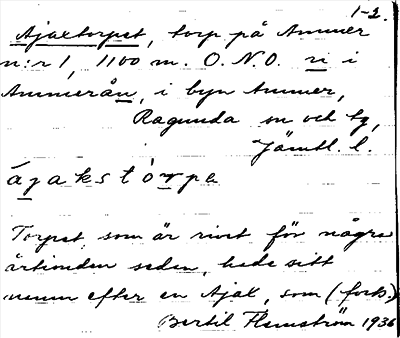 1-2.
Ajaxtorpet, torp på Ammer
n:r 1, 1100 m. O.N.O. vi i
Ammerån, i byn Ammer,
Ragunda sn och tg,
Jämtl. l.
ájakstòrpe
Torpet, som är rivet för några
årtionden sedan, hade sitt
namn efter en Ajax, som (forts.)
Bertil Flemström 1936